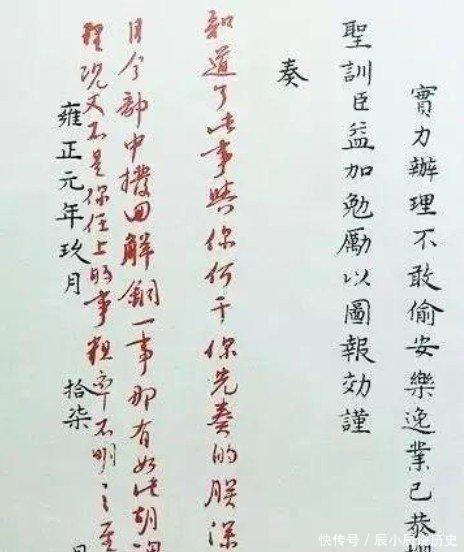 實力辦理不敢偷安樂逸業已恭摺
聖訓臣益加勉勵以圖報効謹
奏
知道了此事與你何干你先奏的朕深
目今部中撥回解銅一事那有如此胡
程况又不是你任上的事粗率不明之至
雍正元年玖月
拾柒
快传号／辰小辰谈历史